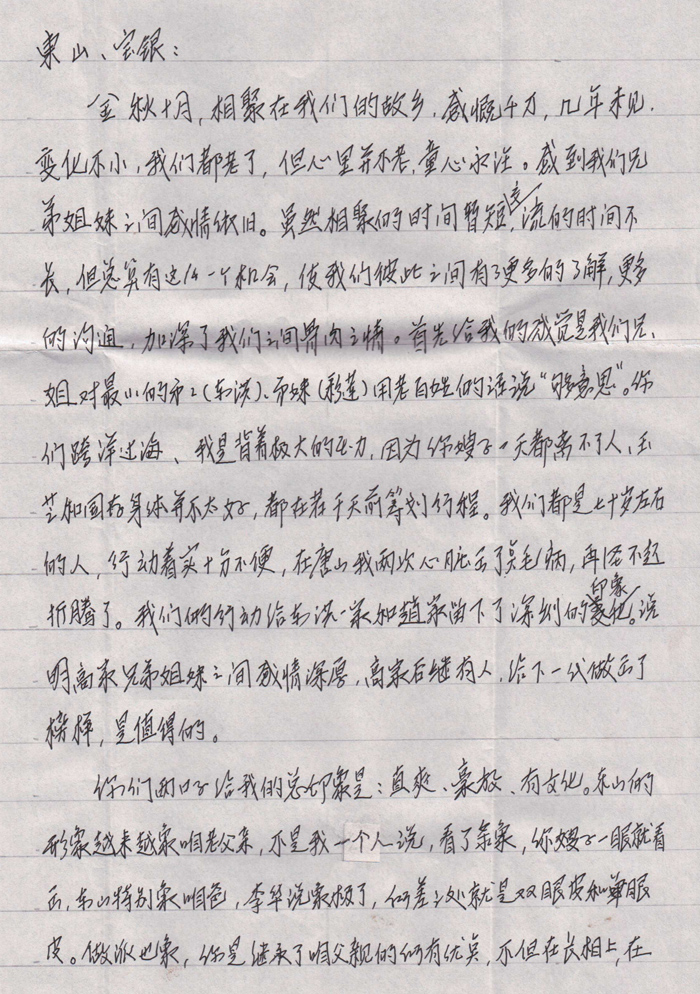 东山、宝银：
金秋十月，相聚在我们的故乡，感慨千万，几年未见，
变化不小，我们都老了，但心里并不老，童心永注。感到我们兄
弟姐妹之间感情依旧。虽然相聚的时间暂短，交流的时间不
长，但总算有这么一个机会，使我们彼此之间有了更多的了解，更多
的沟通，加深了我们之间骨肉之情。首先给我的感觉是我们兄、
姐对最小的弟（东洪）、弟妹（彩莲）用老百姓的话说“够意思”。你
们跨洋过海、我是背着极大的压力，因为你嫂子一天都离不了人，玉
芝和国存身体并不太好，都在若干天前筹划行程。我们都是七十岁左右
的人，行动着实十分不便，在唐山我两次心脏出了点毛病，再经不起
折腾了。我们的行动给东洪一家和赵家留下了深刻的印象。说
明高家兄弟姐妹之间感情深厚，高家后继有人，给下一代做出了
榜样，是值得的。
你们两口子给我的总印象是：直爽、豪放、有文化。东山的
形象越来越象咱老父亲，不是我一个人说，看了录象，你嫂子一眼就看
出，东山特别象咱爸，李华说象极了，所差之处就是双眼皮和单眼
皮。做派也象，你是继承了咱父亲的所有优点，不但在长相上，在